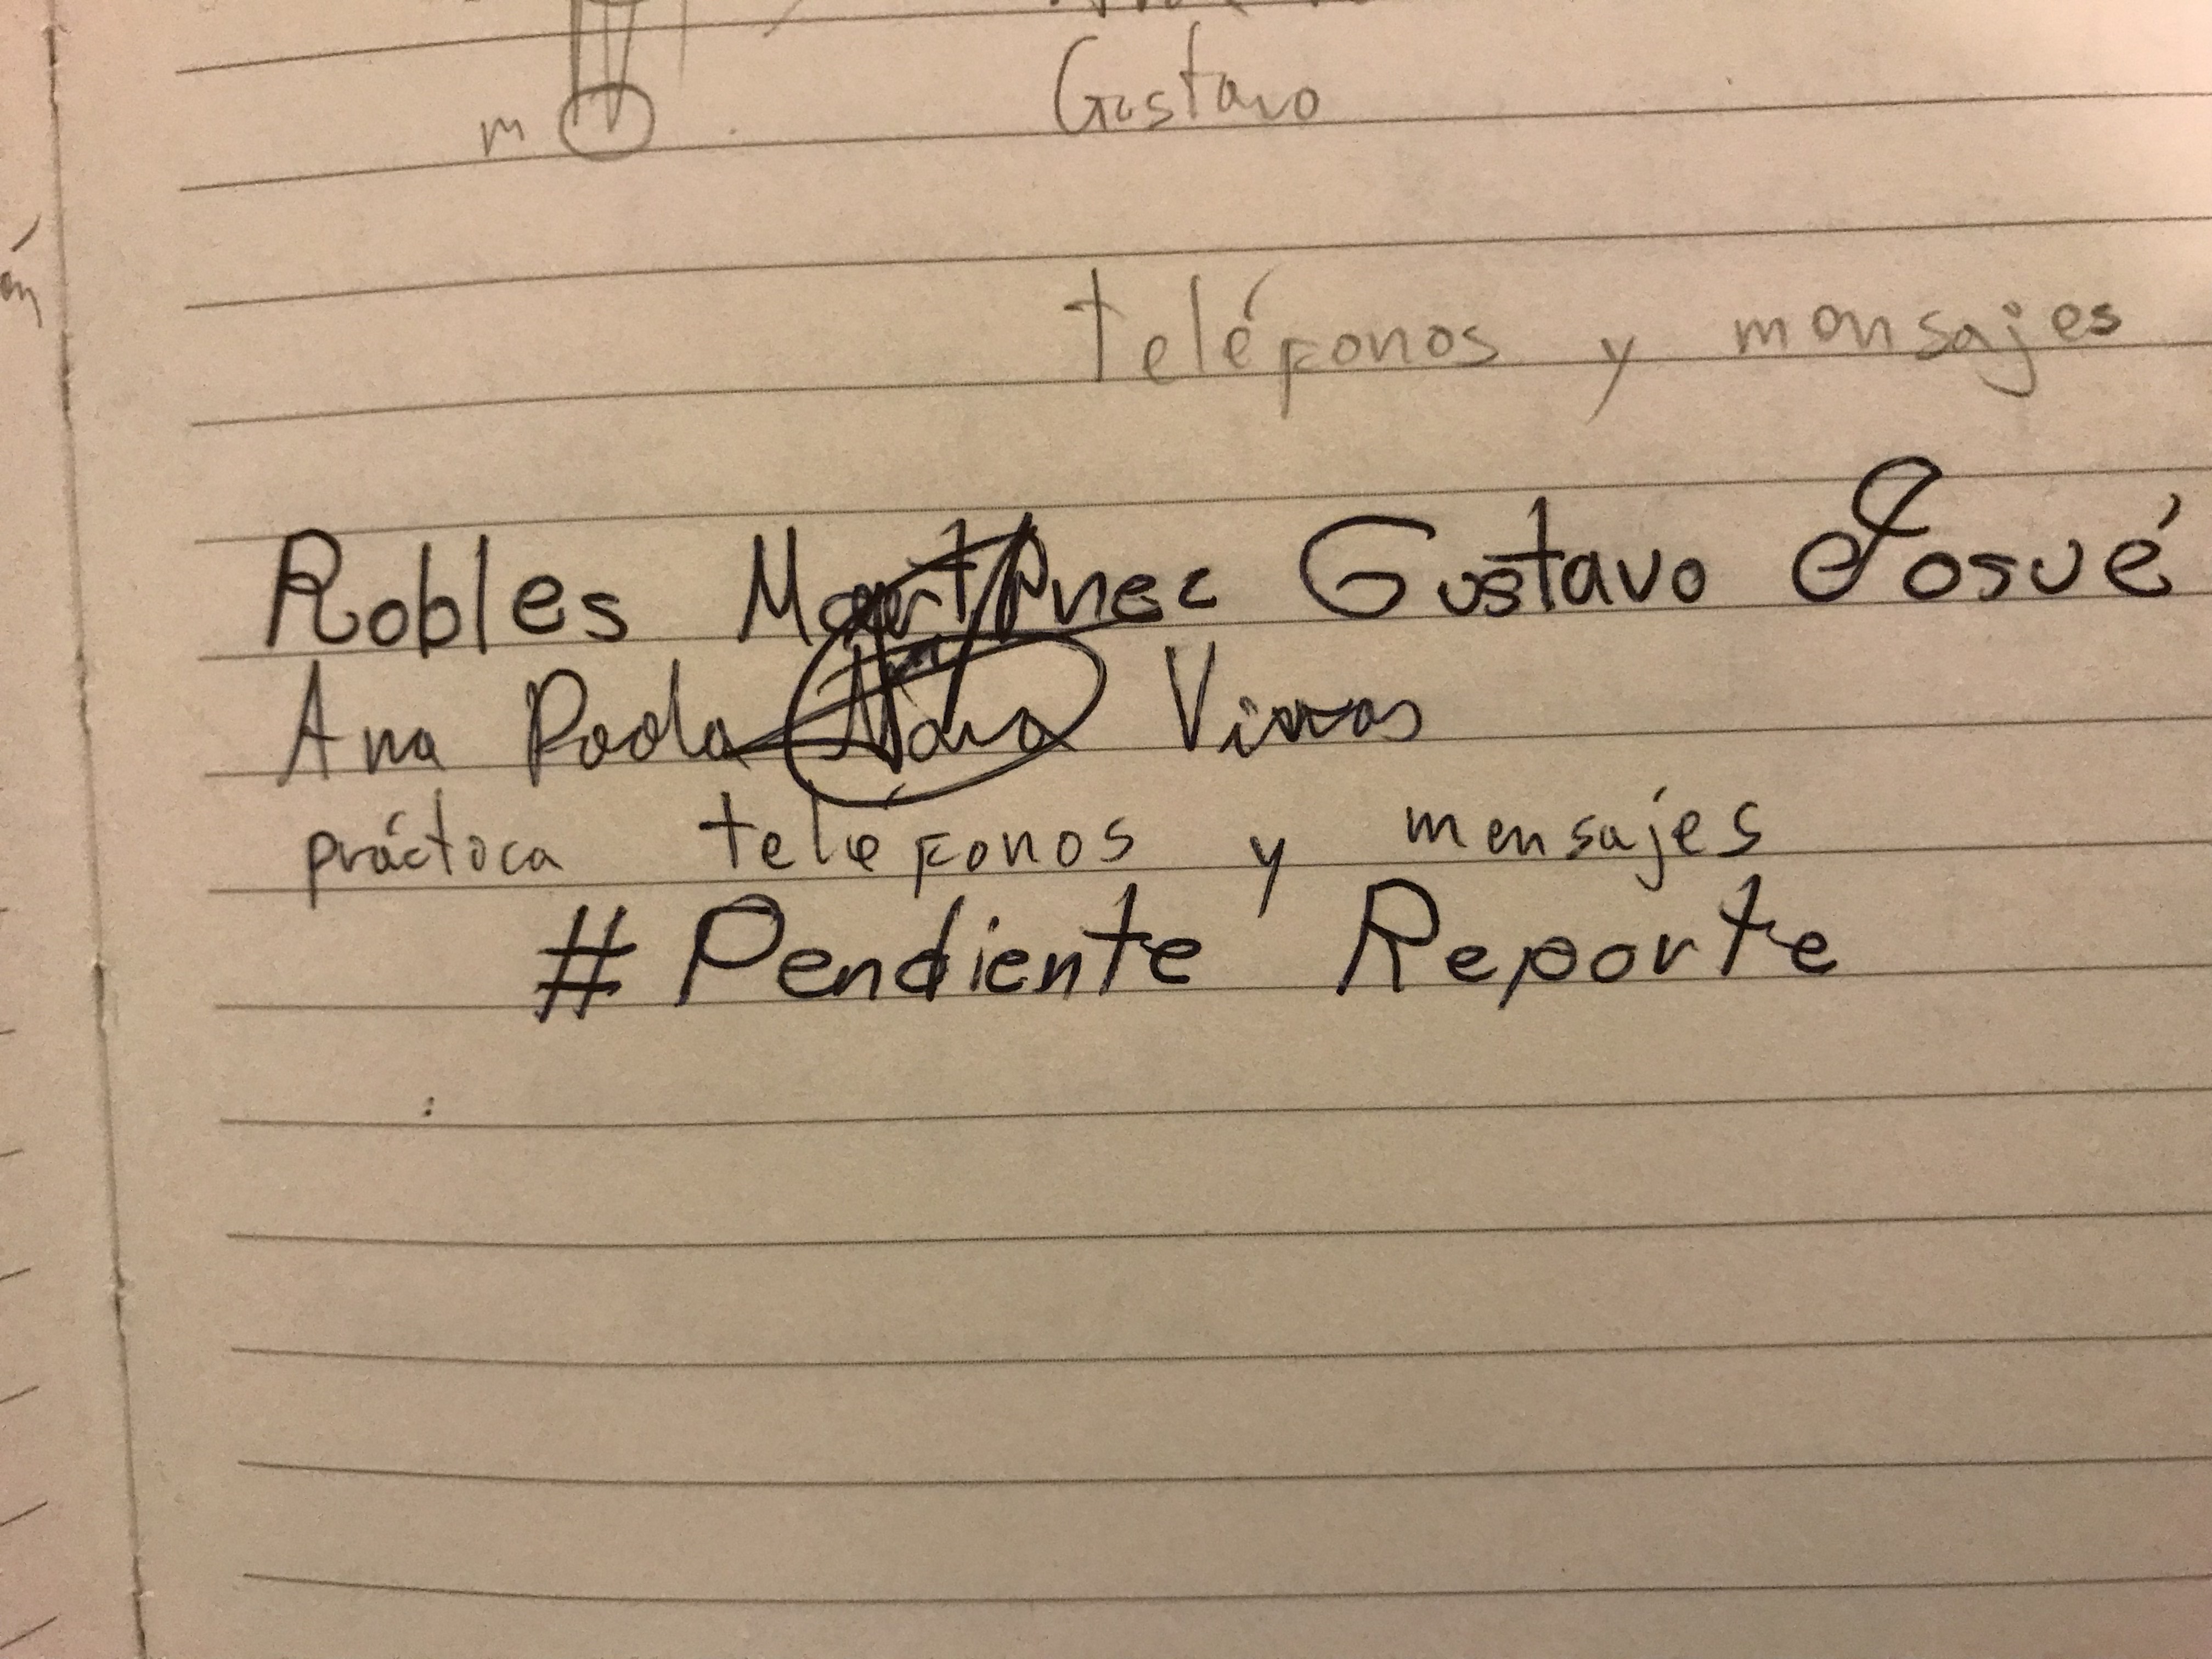 m
Gustavo
teléfonos y monsajes
Robles Martínez Gustavo Josué
Ana Paola Nava Vivas
práctoca telefonos y mensajés
#Pendiente Reporte